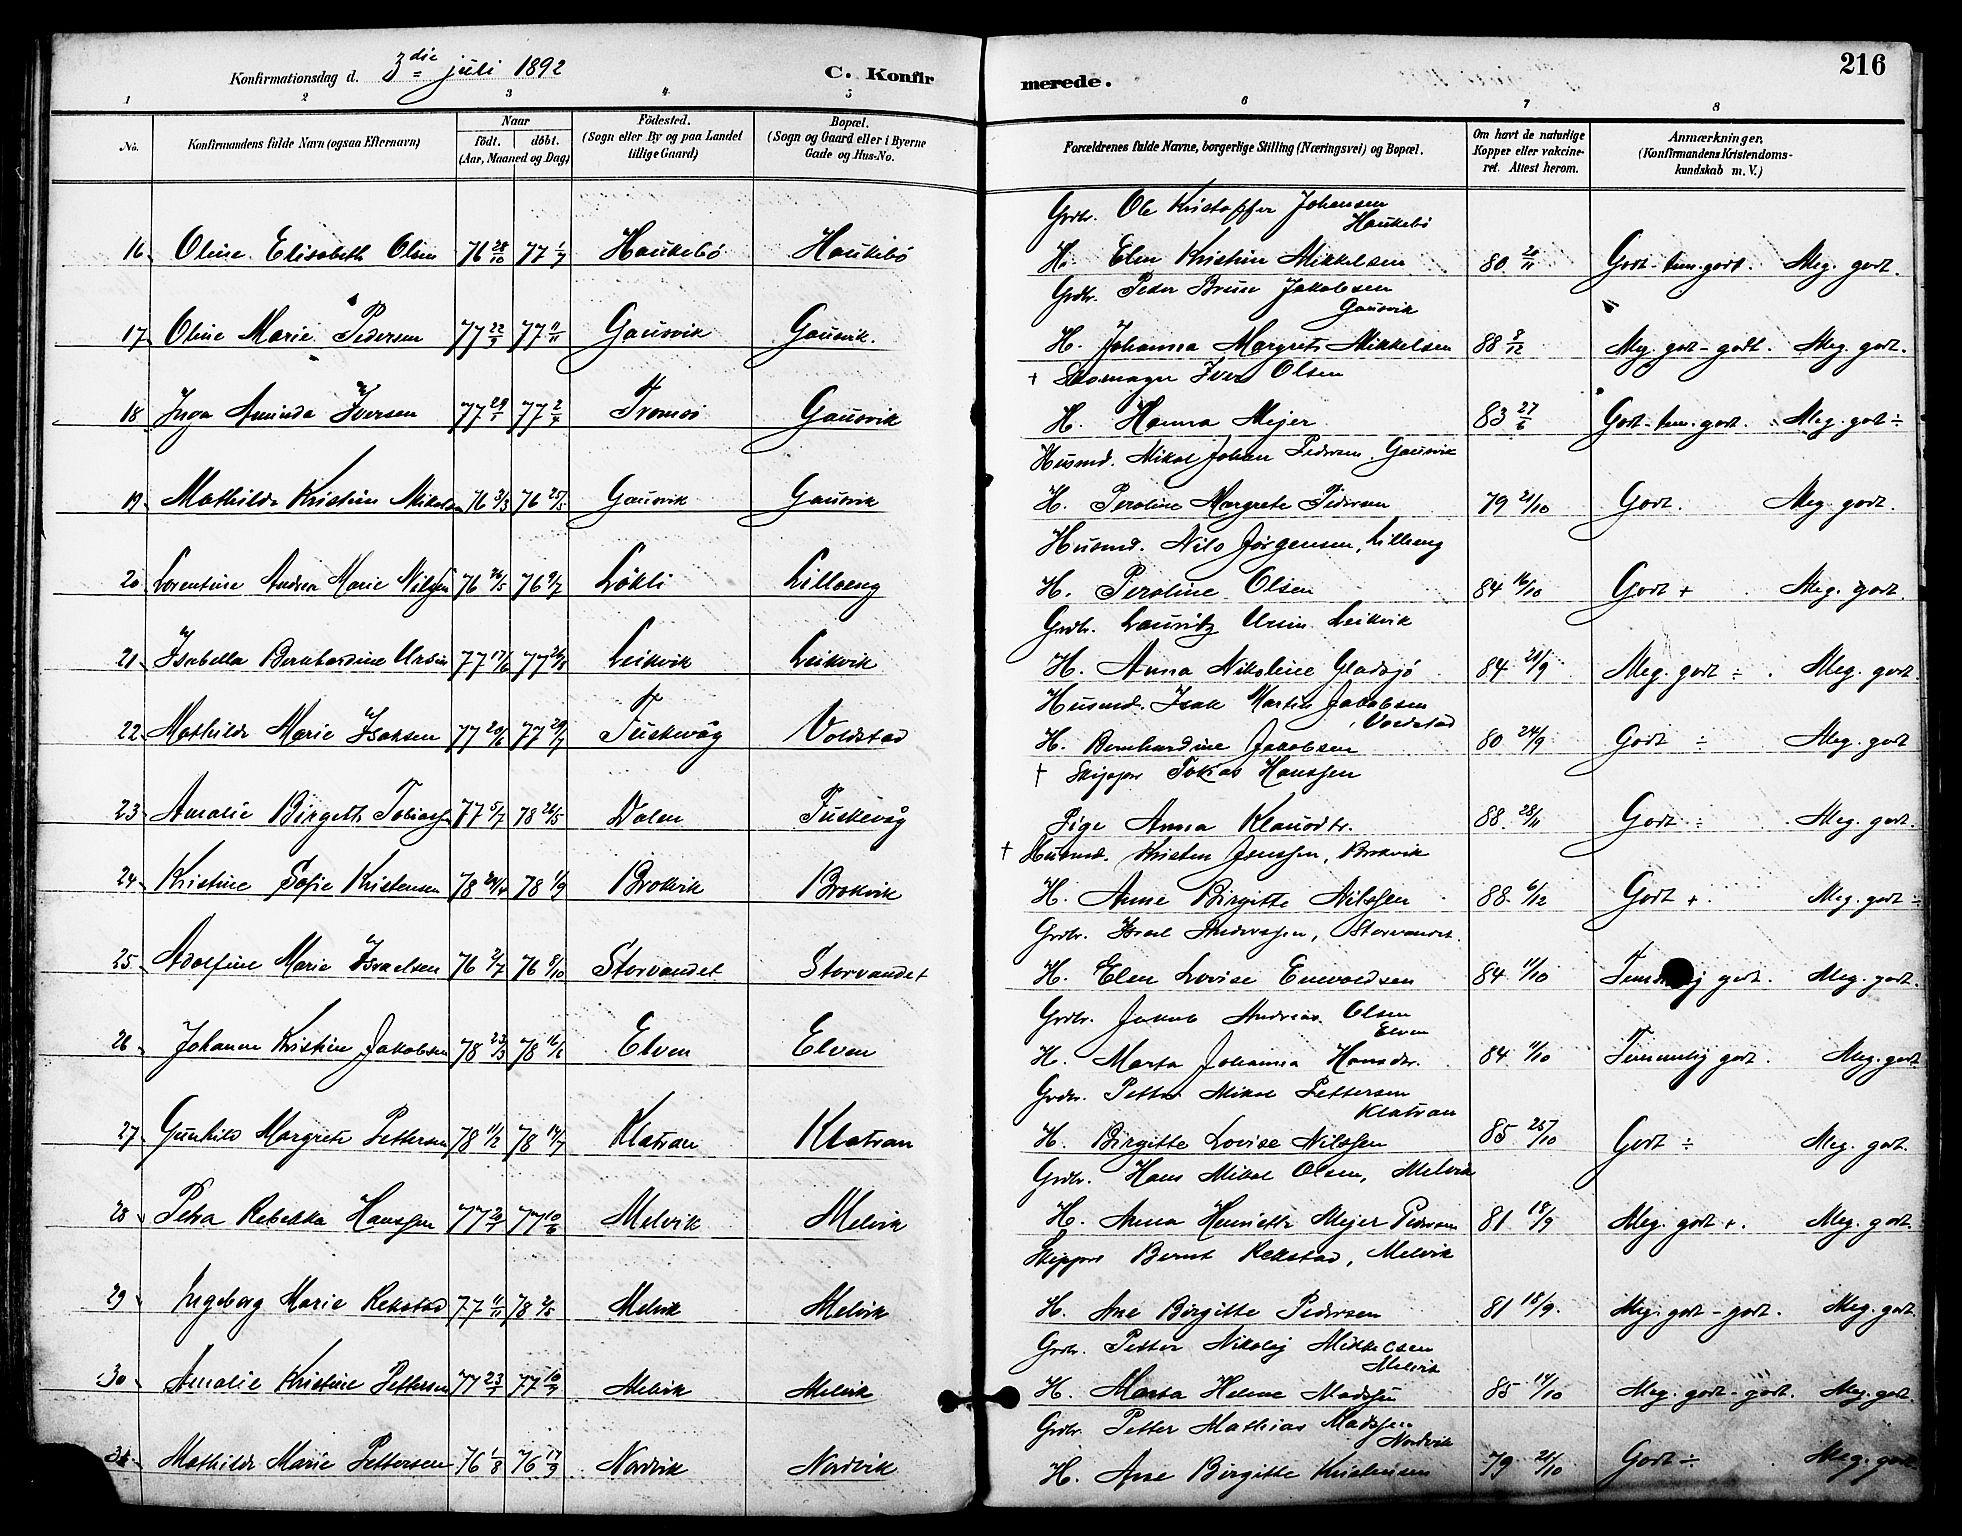 Konfirmationsdag d. 3die juli 1892
C. Konfirmerede.
216
1 2 3 4 5 6 7 8
No.
Konfirmandens fulde Navn (ogsaa Efternavn)
Naar
födt. döbt.
(Aar, Maaned og Dag)
Födested.
(Sogn eller By og paa Landet
tillige Gaard)
Bopæl.
(Sogn og Gaard eller i Byerne
Gade og Hus-No.
Forældrenes fulde Navne, borgerlige Stilling (Næringsvei) og Bopæl.
Om havt de naturlige
Kopper eller vakcine-
ret. Attest herom.
Anmærkninger,
(Konfirmandens Kristendoms-
kundskab m. V.)
Grdbr. Ole Kristoffer Johansen
Haukebö
16 Oline Elisabeth Olsen 76 28/10 77 1/7 Haukebö Haukebö H. Elen Kristine Mikkelsen 80 20/11 Godt - tem. godt. Meg. godt.
Grdbr. Peder Bruun Jakobsen
Gausvik
17 Oline Marie Pedersen 77 22/9 77 11/11 Gausvik Gausvik. H. Johanna Margrete Mikkelsen 88 8/12 Meg. godt - godt. Meg. godt.
† Skomager Iver Olsen
18 Inga Aminda Iversen 77 29/1 77 2/4 Tromsö Gausvik H. Hanna Mejer 83 27/6 Godt - tem. godt. Meg. godt ÷
Husmd. Mikal Johan Pedersen Gausvik
19 Mathilde Kristine Mikalsen 76 31/3 76 25/5 Gausvik Gausvik H. Peroline Margrete Pedersen 79 21/10 Godt. Meg. godt.
Husmd. Nils Jörgensen, Lilleeng
20 Lorentine Andrea Marie Nilsen 76 26/5 76 9/7 Lökli Lilleeng H. Peroline Olsen 84 16/10 Godt + Meg. godt.
Grdbr. Lauritz Ursin Leikvik
21 Isabella Bernhardine Ursin 77 17/6 77 26/8 Leikvik Leikvik H. Anna Nikoline Gladsjö 84 21/9 Meg. godt ÷. Meg. godt.
Husmd. Isak Martin Jakobsen
Voldstad
22 Mathilde Marie Isaksen 77 20/6 77 29/7 Tuskevåg Voldstad H. Bernhardine Jakobsen 80 24/9 Godt ÷ Meg. godt
† Skipper Tobias Hanssen
23 Amalie Birgette Tobiassen 77 5/7 78 26/5 Dalen Tuskevåg Pige Anna Klausdtr. 88 28/11 Godt ÷ Meg. godt.
† Husmd. Kristen Jenssen, Brokvik
24 Kristine Sofie Kristensen 78 20/4 78 1/9 Brokvik Brokvik H. Anne Birgitte Nilssen 88 6/12 Godt +. Meg. godt ÷
Grdbr. Israel Anderssen, Storvandet.
25 Adolfine Marie Israelsen 76 2/7 76 8/10 Storvandet Storvandet H. Elen Lovise Envoldsen 84 11/10 Temmelig godt. Meg. godt.
Grdbr. Jakob Andreas Olsen
Elven
26 Johanne Kristine Jakobsen 78 23/3 78 16/6 Elven Elven H. Marta Johanna Hansdtr. 84 11/10 Temmelig godt. Meg. godt
Grdbr. Petter Mikal Pettersen
Klatran
27 Gunhild Margrete Pettersen 78 11/2 78 14/7 Klatran Klatran H. Birgitte Lovise Nilssen 85 25/10 Godt ÷ Meg. godt.
Grdbr. Hans Mikal Olsen, Melvik
28 Petra Rebekka Hanssen 77 20/7 77 10/6 Melvik Melvik H. Anna Henriette Mejer Pedersen 81 18/9 Meg. godt +. Meg. godt.
Skipper Bernt Rekstad, Melvik
29 Ingeborg Marie Rekstad 77 11/11 78 2/5 Melvik Melvik H. Ane Birgitte Pedersen 81 18/9. Meg. godt - godt. Meg. godt
Grdbr. Petter Nikolaj Mikkelsen
Melvik
30 Amalie Kristine Pettersen 77 23/1 77 10/7 Melvik Melvik H. Marta Helene Madssen 85 14/10 Meg. godt - godt. Meg. godt.
Grdbr. Petter Mathias Madssen
Nordvik
31 Mathilde Marie Pettersen 76 1/8 76 17/9 Nordvik Nordvik H. Ane Birgitte Kristensen 79 21/10 Godt ÷ Meg. godt.